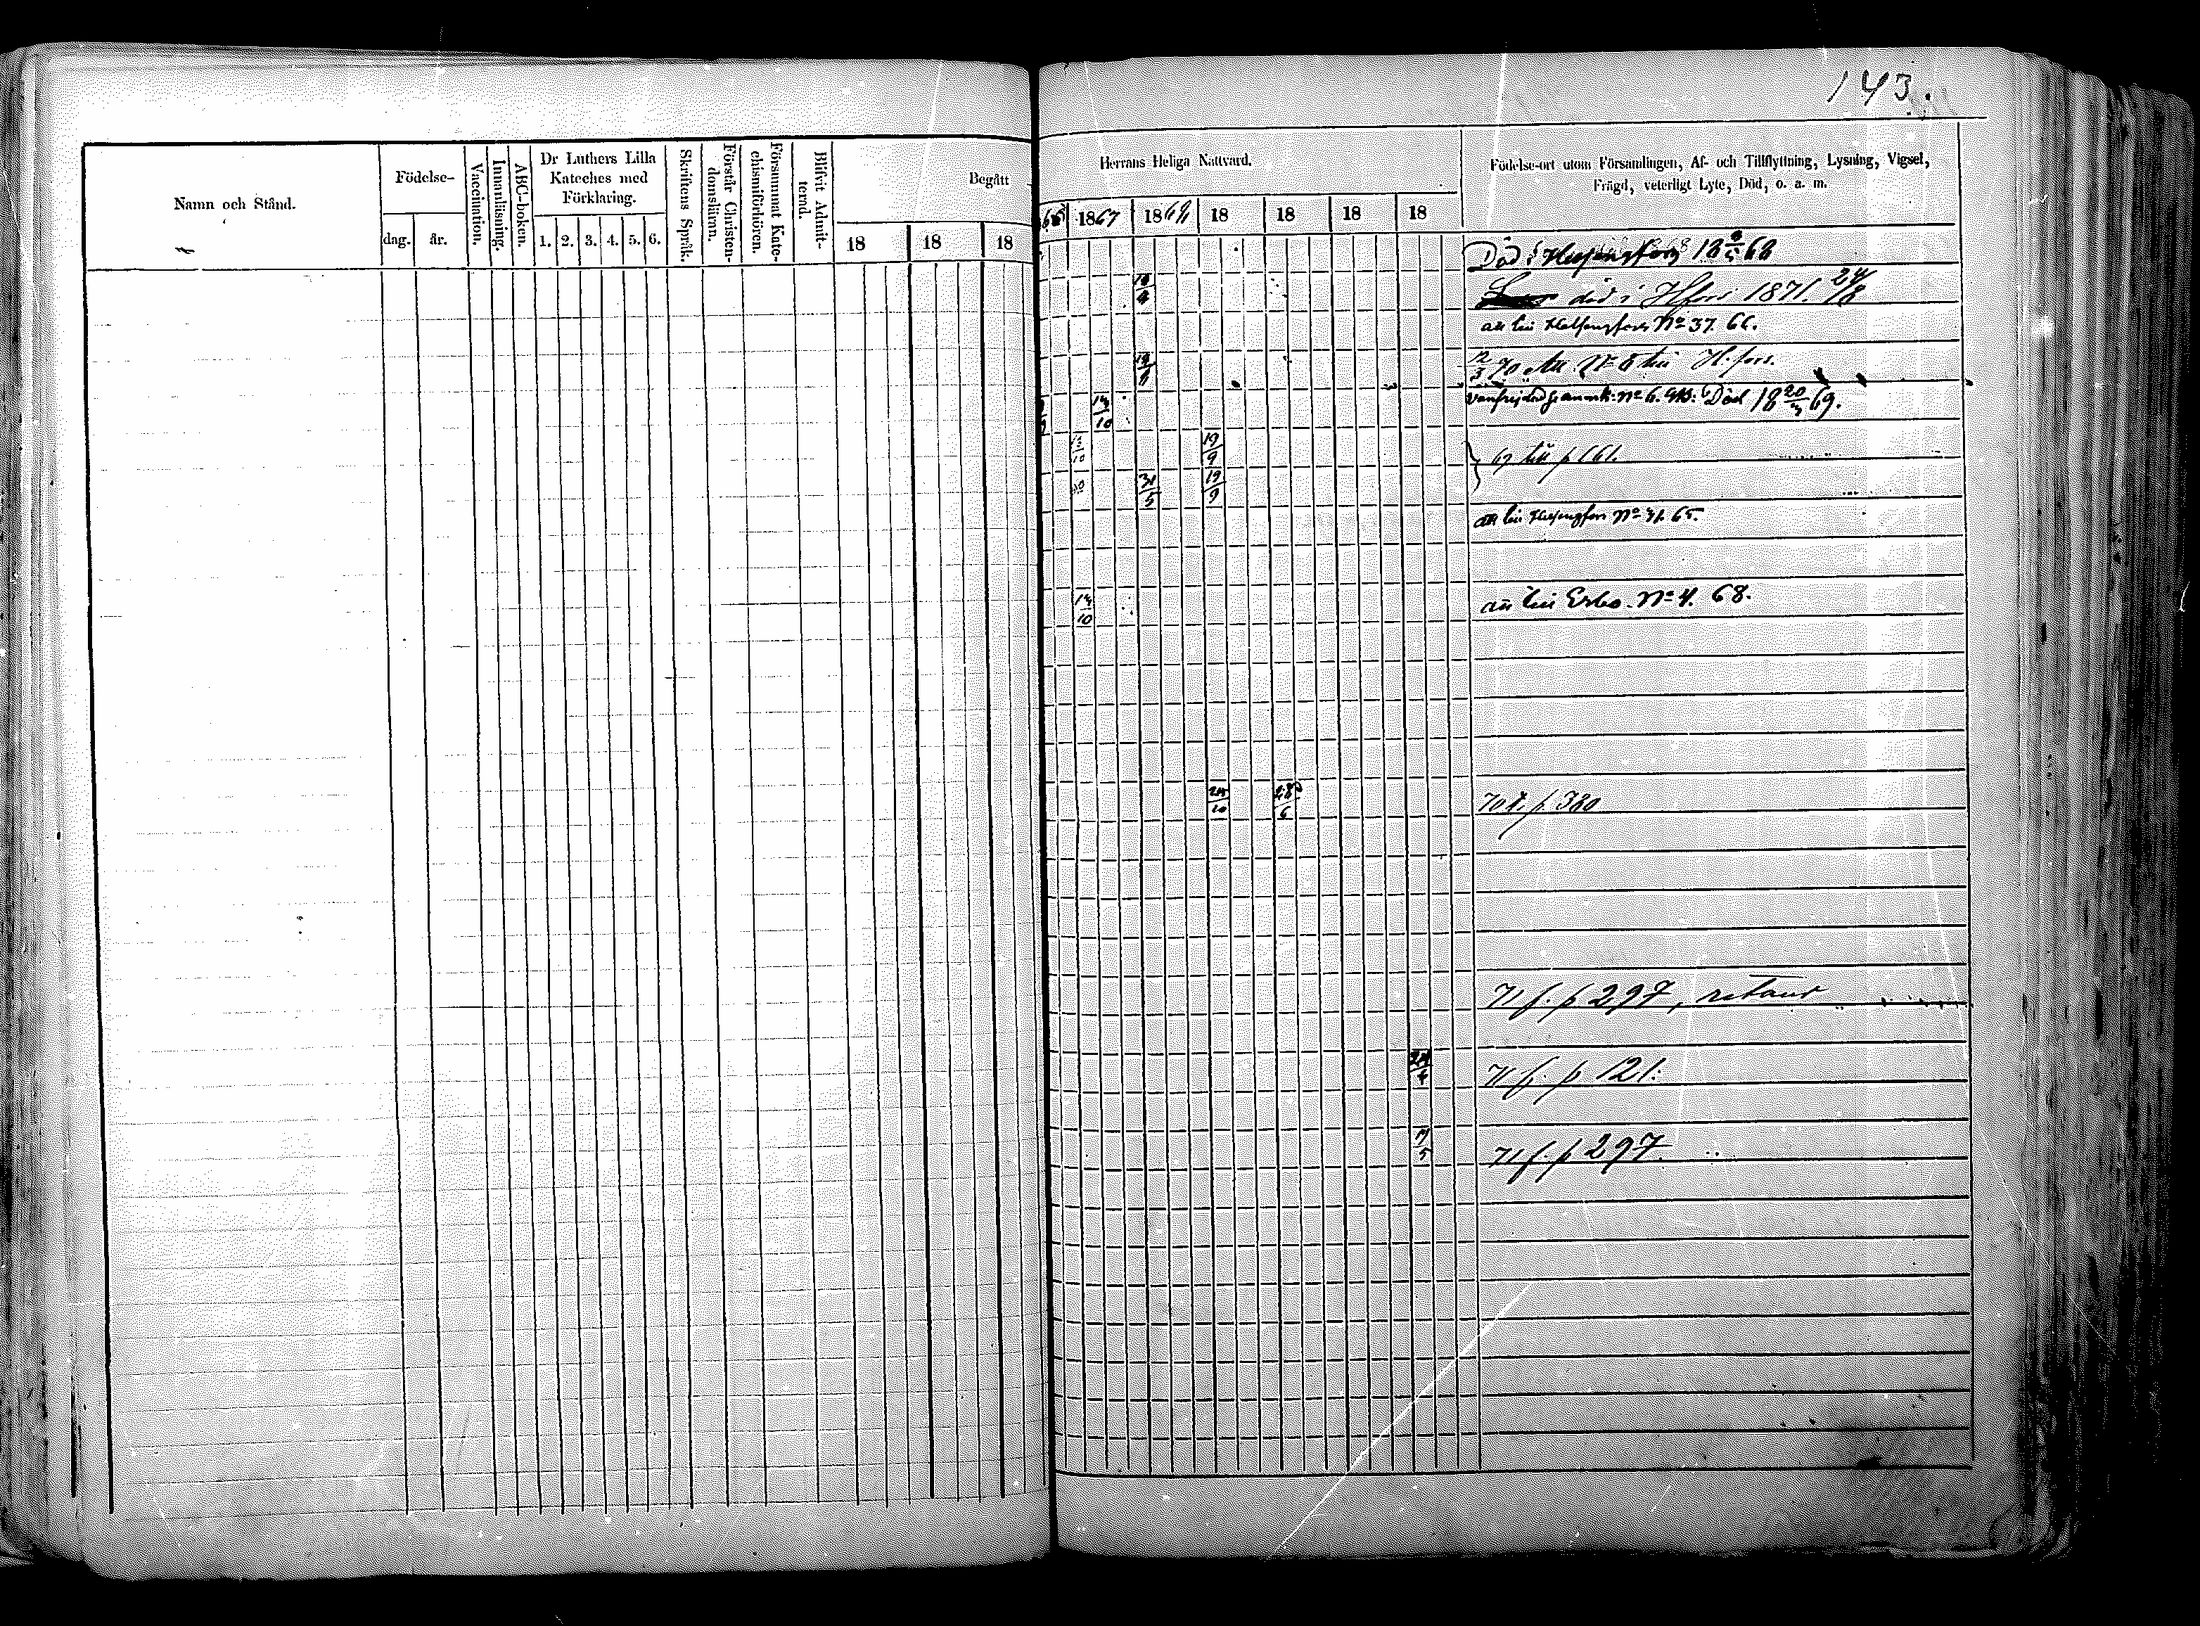 143.
Namn och Stånd.
Födelse-
dag.
år.
Vaccination.
Innanläsning.
ABC-boken.
Dr Luthers Lilla
Kateches med
Förklaring.
1. 2. 3. 4. 5. 6.
Skriftens Språk.
Förstår Christen-
domsläran.
Försummat Kate-
chismiförhören.
Blifvit Admit-
terad.
Begått
18 18 18
Herrans Heliga Nattvard.
1867 18 18 18 18 18
Födelse-ort utom Församlingen, Af- och Tillflyttning, Lysning, Vigsel,
Frägd, veterligt Lyte, Död, o. a. m.
Död i Helsingfors 18 68
död i Hfors 1871. 24/8
att till Helsingfors No 37. 66.
12/3 70 att. No 8 till H:fors.
No 6. Död 18 20/3 69.
14/10
19/9
69 till p 161.
31/5 19/9
att till Helsingfors No 31. 65.
14/10
att till Esbo. No 4. 68.
70 t. p. 380
71 f. p 297,
71 f. p 121.
71 f. p 297.